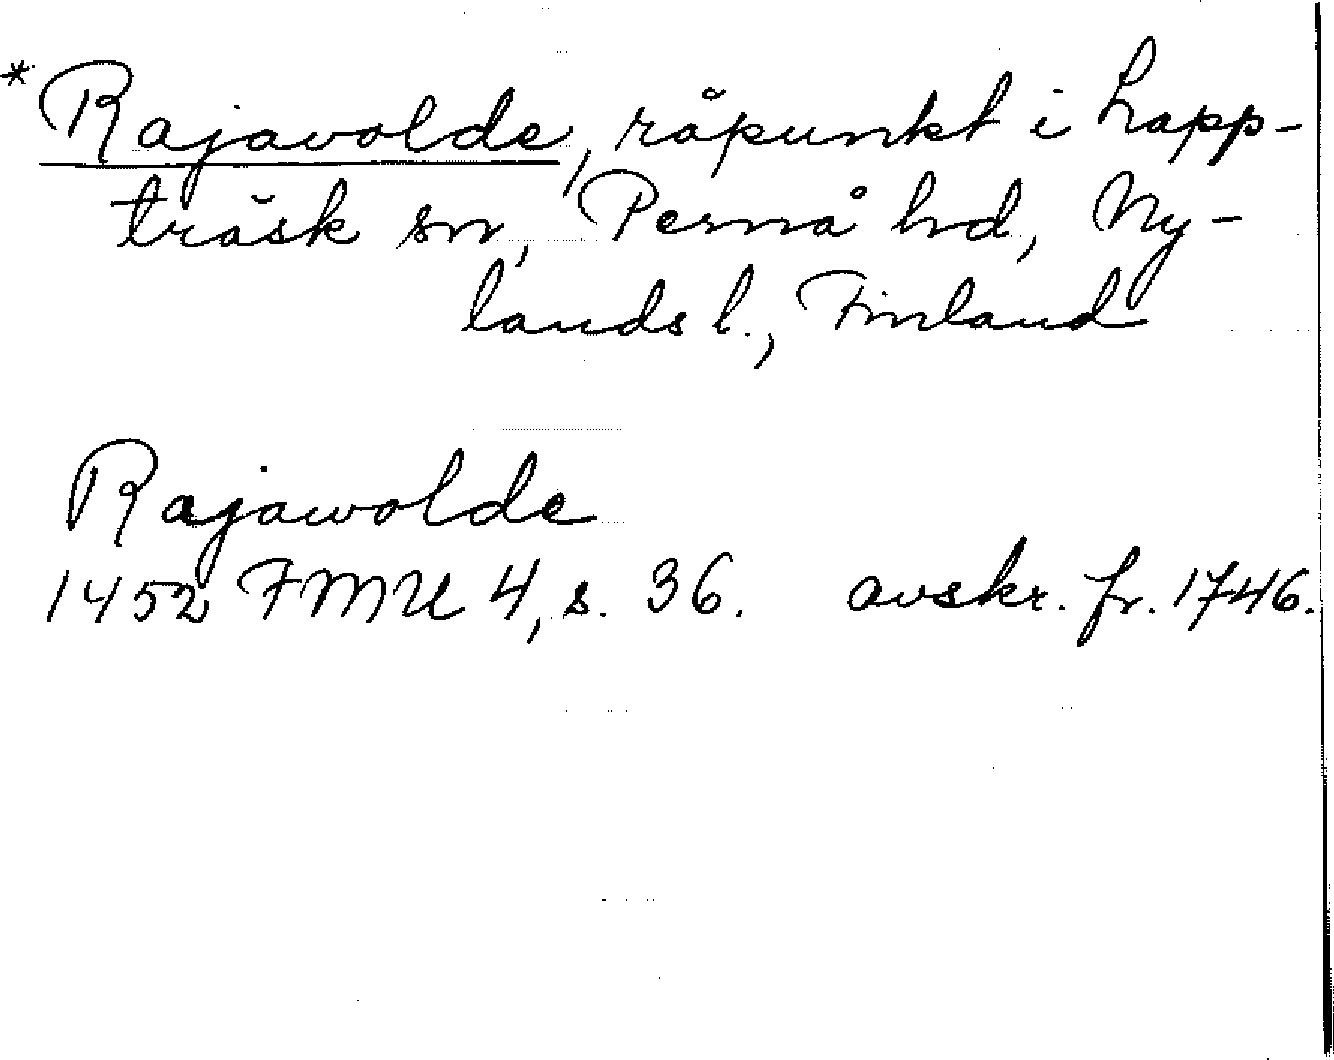 * Rajavolde, råpunkt i Lapp-
träsk sn, Pernå hd, Ny-
lands l., Finland
Rajawolde
1452 FMU 4, s. 36. avskr. fr. 1746.